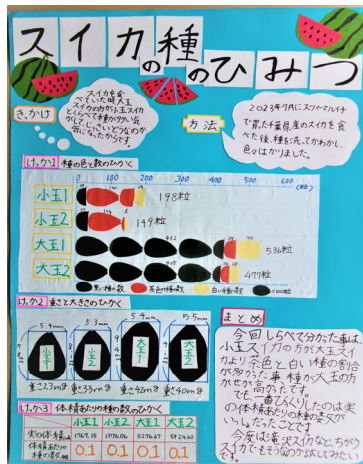 スイカの種のひみつ
き、かけ
スイカを食
べていた時大玉
スイカの方が小玉スイカ
とくらべて種が少ない気
がして、じっさいどうなのか
気になったからです。
方法
2023年7月にスーパーマルイチ
で買った千葉県産のスイカを食
べた後、種を洗ってかわかし、
色々はかりました。
けっか1 種の色と数のひかく
0 100 200 300 400 500 600 (粒)
小玉1 198粒
小玉2 149粒
大玉1 452 536粒
大玉2 477粒
黒い種の数 茶色の種の数 白い種の数 =100粒
けっか2 重さと大きさのひかく
5.4mm 5.3mm 5.4mm 5.5mm
小玉1 小玉2 大玉1 大玉2
重さ23mg 重さ33mg 重さ42mg 重さ40mg
けっか3 体積あたりの種の数のひかく
小玉1 小玉2 大玉1 大玉2
体積あたりの種の数 0.1 0.1 0.1 0.1
まとめ
今回しらべて分かった事は
小玉スイカの方が大玉スイ
カより茶色と白い種の割合
が多かった事、種が大玉の方
がせが高かった事です。
でも、一番びっくりしたのは実
の体積あたりの種の数が
いっしょだったことです。
今度は滝沢スイカなどちがう
スイカでもそうなのか試してみたい
です。